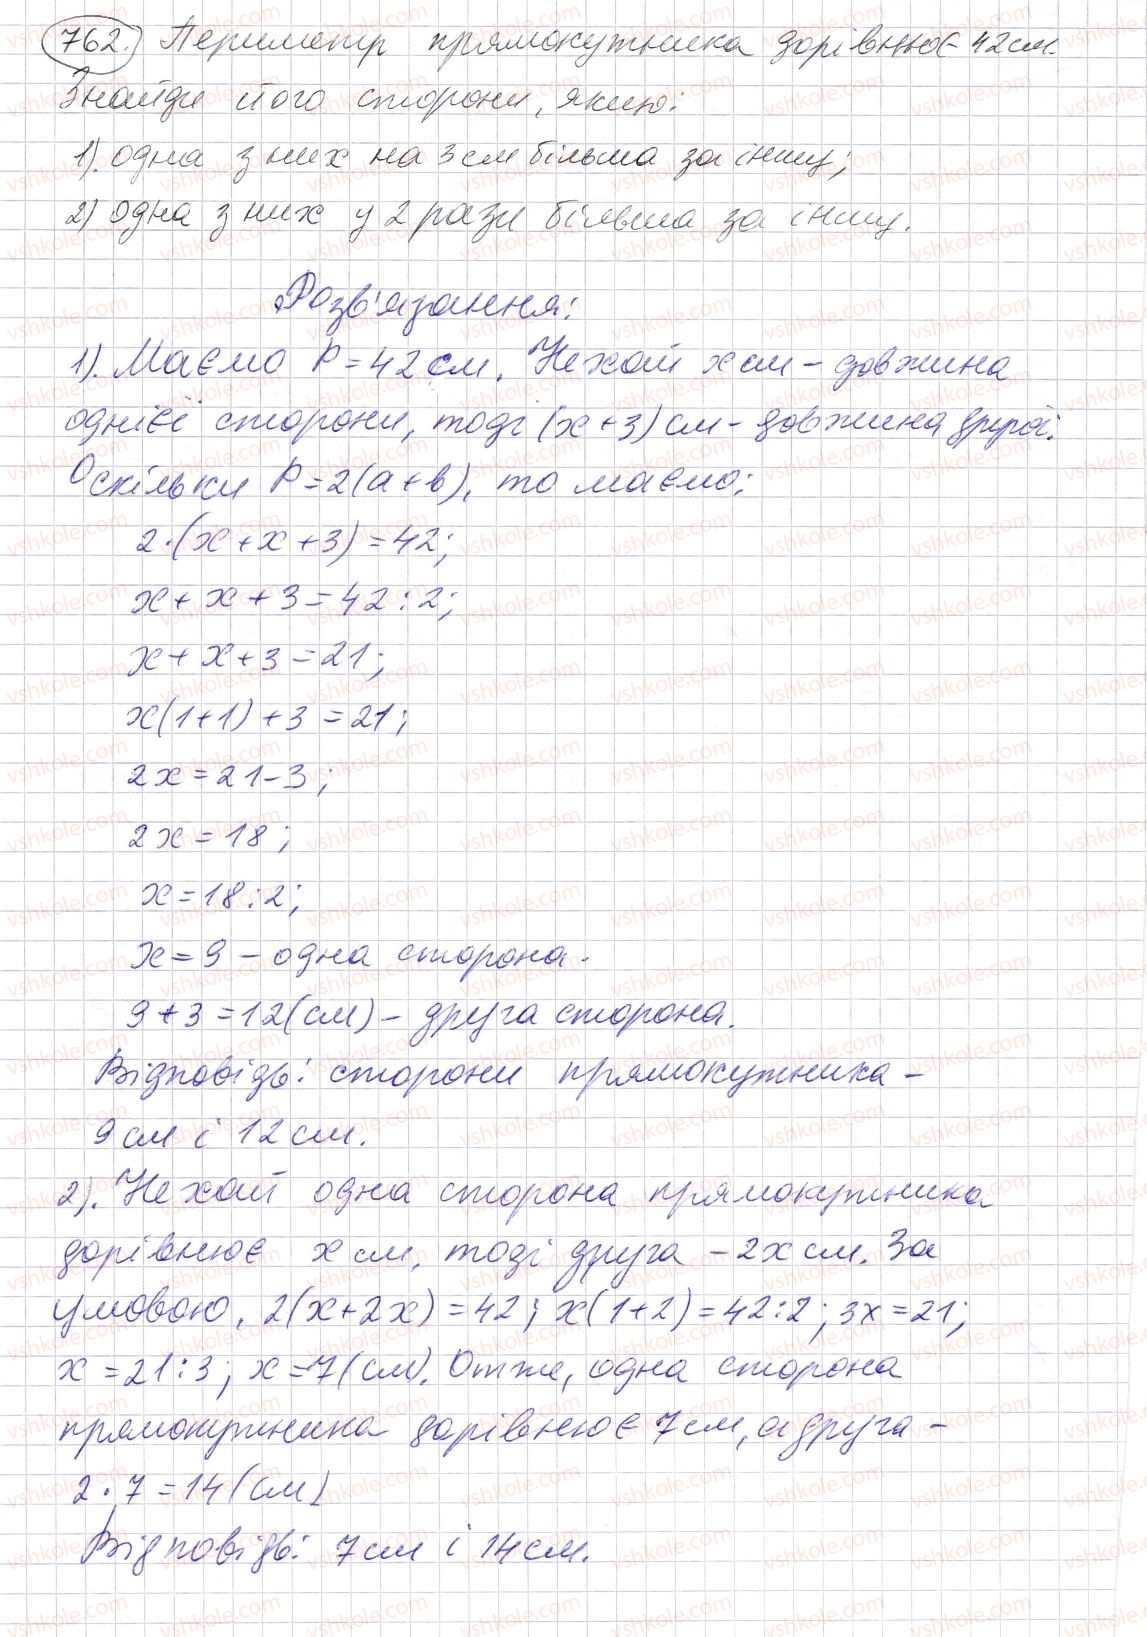 762. Периметр прямокутника дорівнює 42 см.
Знайди його сторони, якщо:
1). одна з них на 3 см більша за іншу;
2) одна з них у 2 рази більша за іншу.
Розв'язання:
1). Маємо P = 42 см. Нехай x см – довжина
однієї сторони, тоді (x + 3) см – довжина другої.
Оскільки P = 2(a + b), то маємо:
2·(x + x + 3) = 42;
x + x + 3 = 42 : 2;
x + x + 3 = 21;
x(1+1) + 3 = 21;
2x = 21 – 3;
2x = 18;
x = 18 : 2;
x = 9 – одна сторона.
9 + 3 = 12 (см) – друга сторона.
Відповідь: сторони прямокутника –
9 см і 12 см.
2). Нехай одна сторона прямокутника
дорівнює x см, тоді друга – 2x см. За
умовою, 2(x + 2x) = 42; x(1+2) = 42:2; 3x = 21;
x = 21 : 3; x = 7 (см). Отже, одна сторона
прямокутника дорівнює 7 см, а друга –
2 · 7 = 14 (см)
Відповідь: 7 см і 14 см.